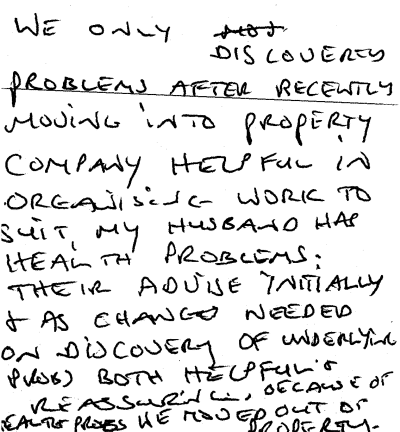 WE ONLY
DISCOVERED
PROBLEMS AFTER RECENTLY
MOVING INTO PROPERTY
COMPANY HELPFUL IN
ORGANISING WORK TO
SUIT, MY HUSBAND HAS
HEALTH PROBLEMS.
THEIR ADVISE INITIALLY
& AS CHANGED NEEDED
ON DISCOVERY OF UNDERLYING
PROB) BOTH HELPFUL &
REASSURING, BECAUSE OF
HEALTH PROBS WE MOVED OUT OF
PROPERTY.